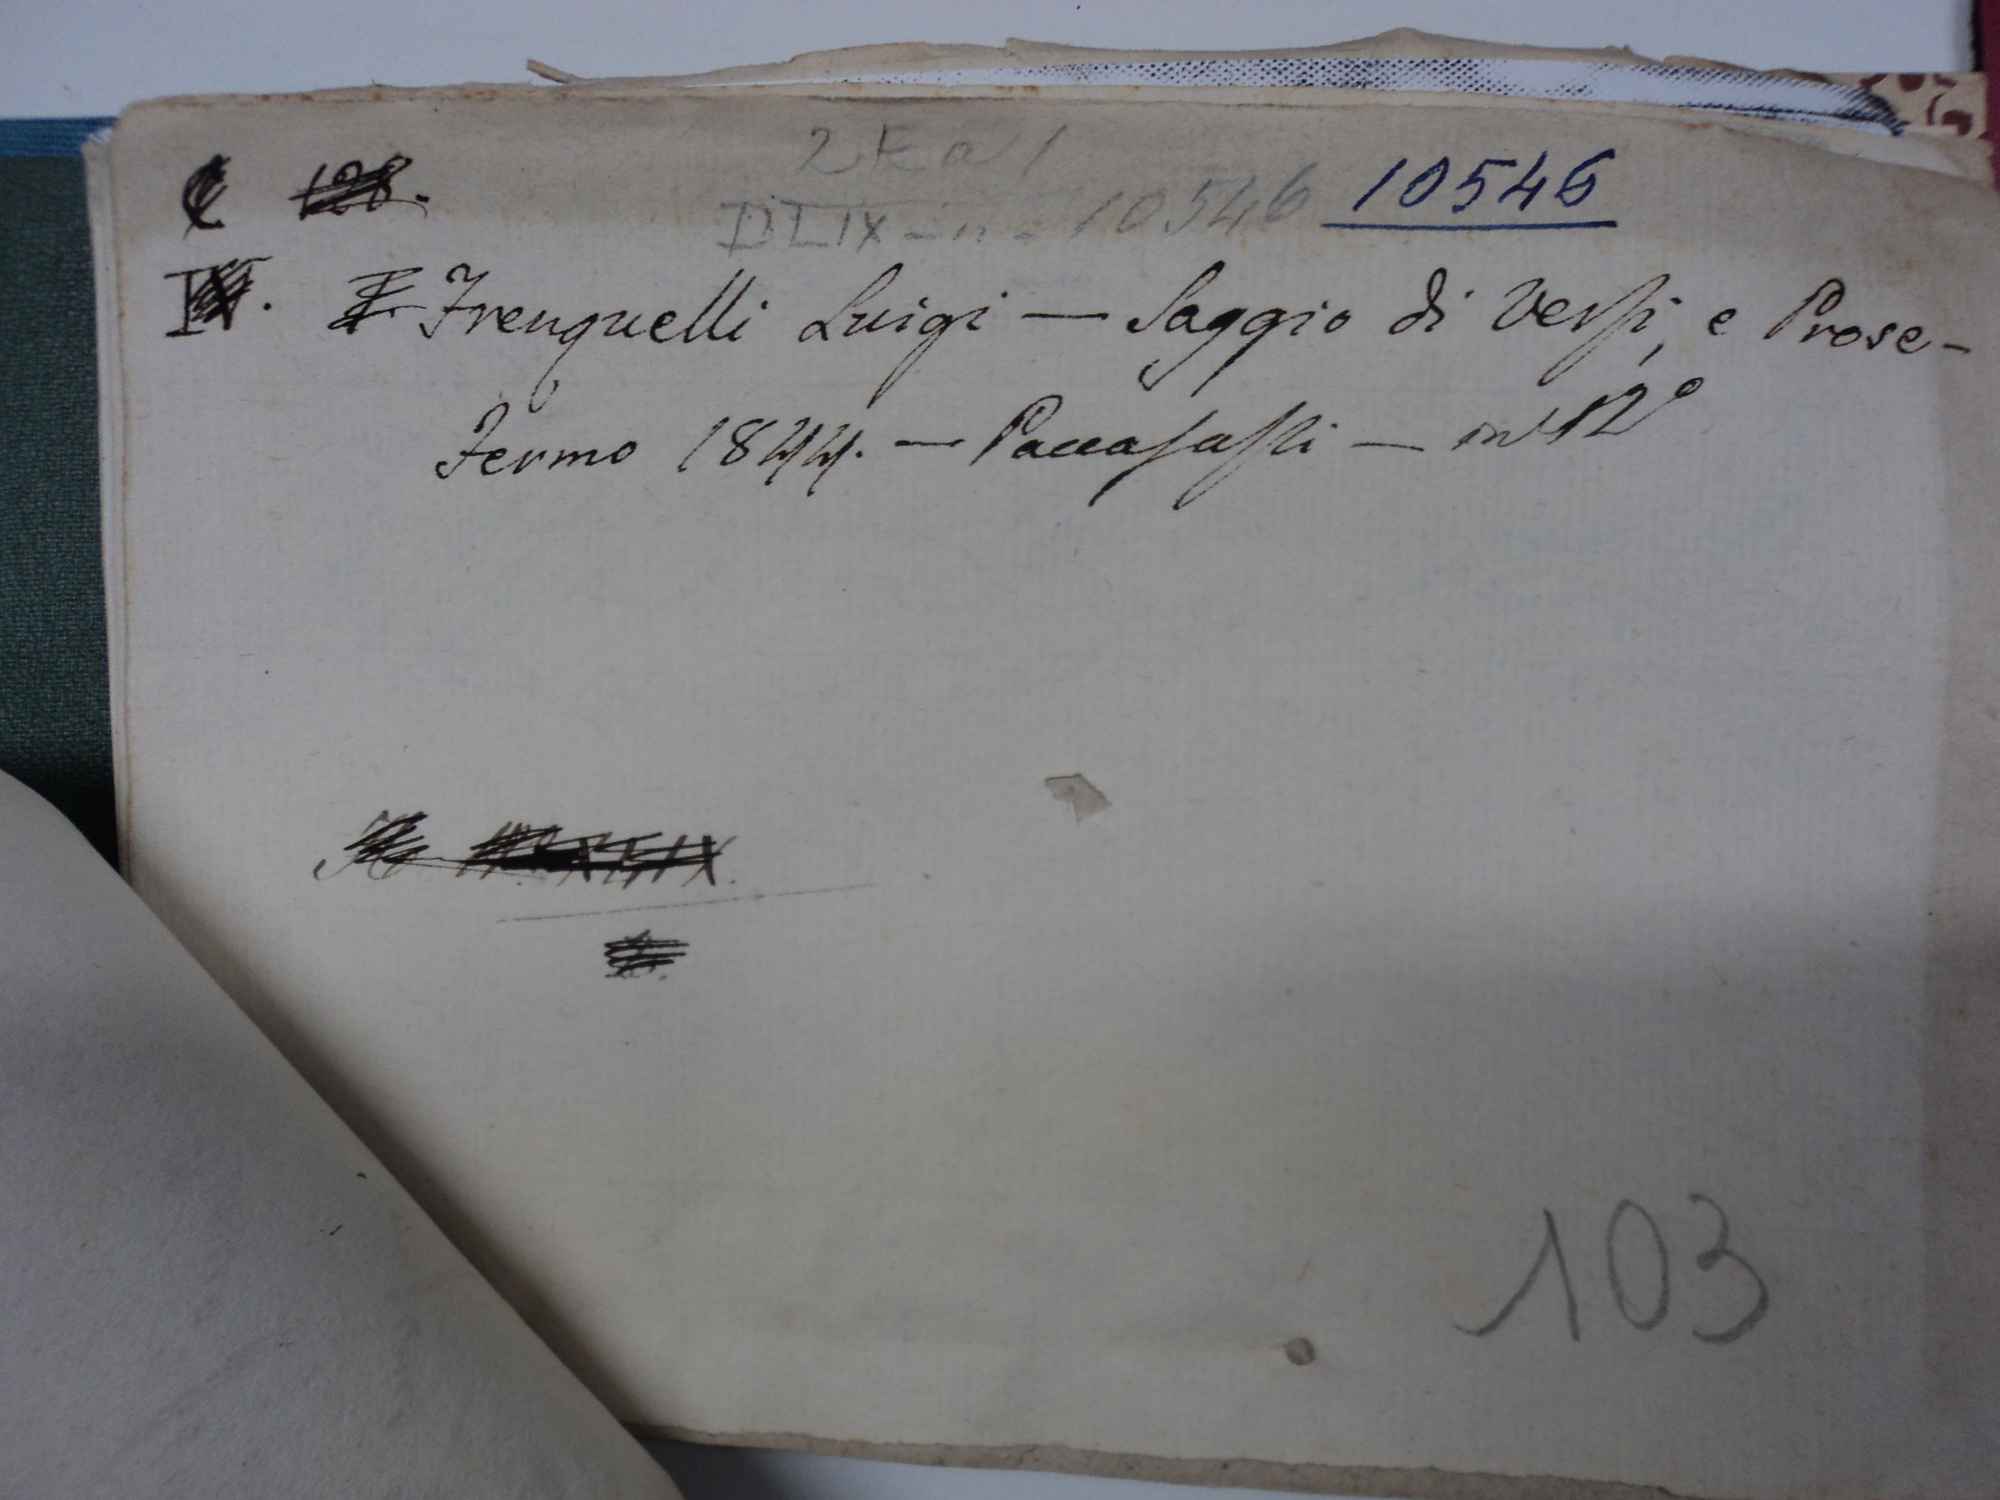 128.
DLIX - n. 10546 10546
Frenguelli Luigi — Saggio di Versi, e Prose-
Fermo 1844. — Paccasassi — in 12º
103